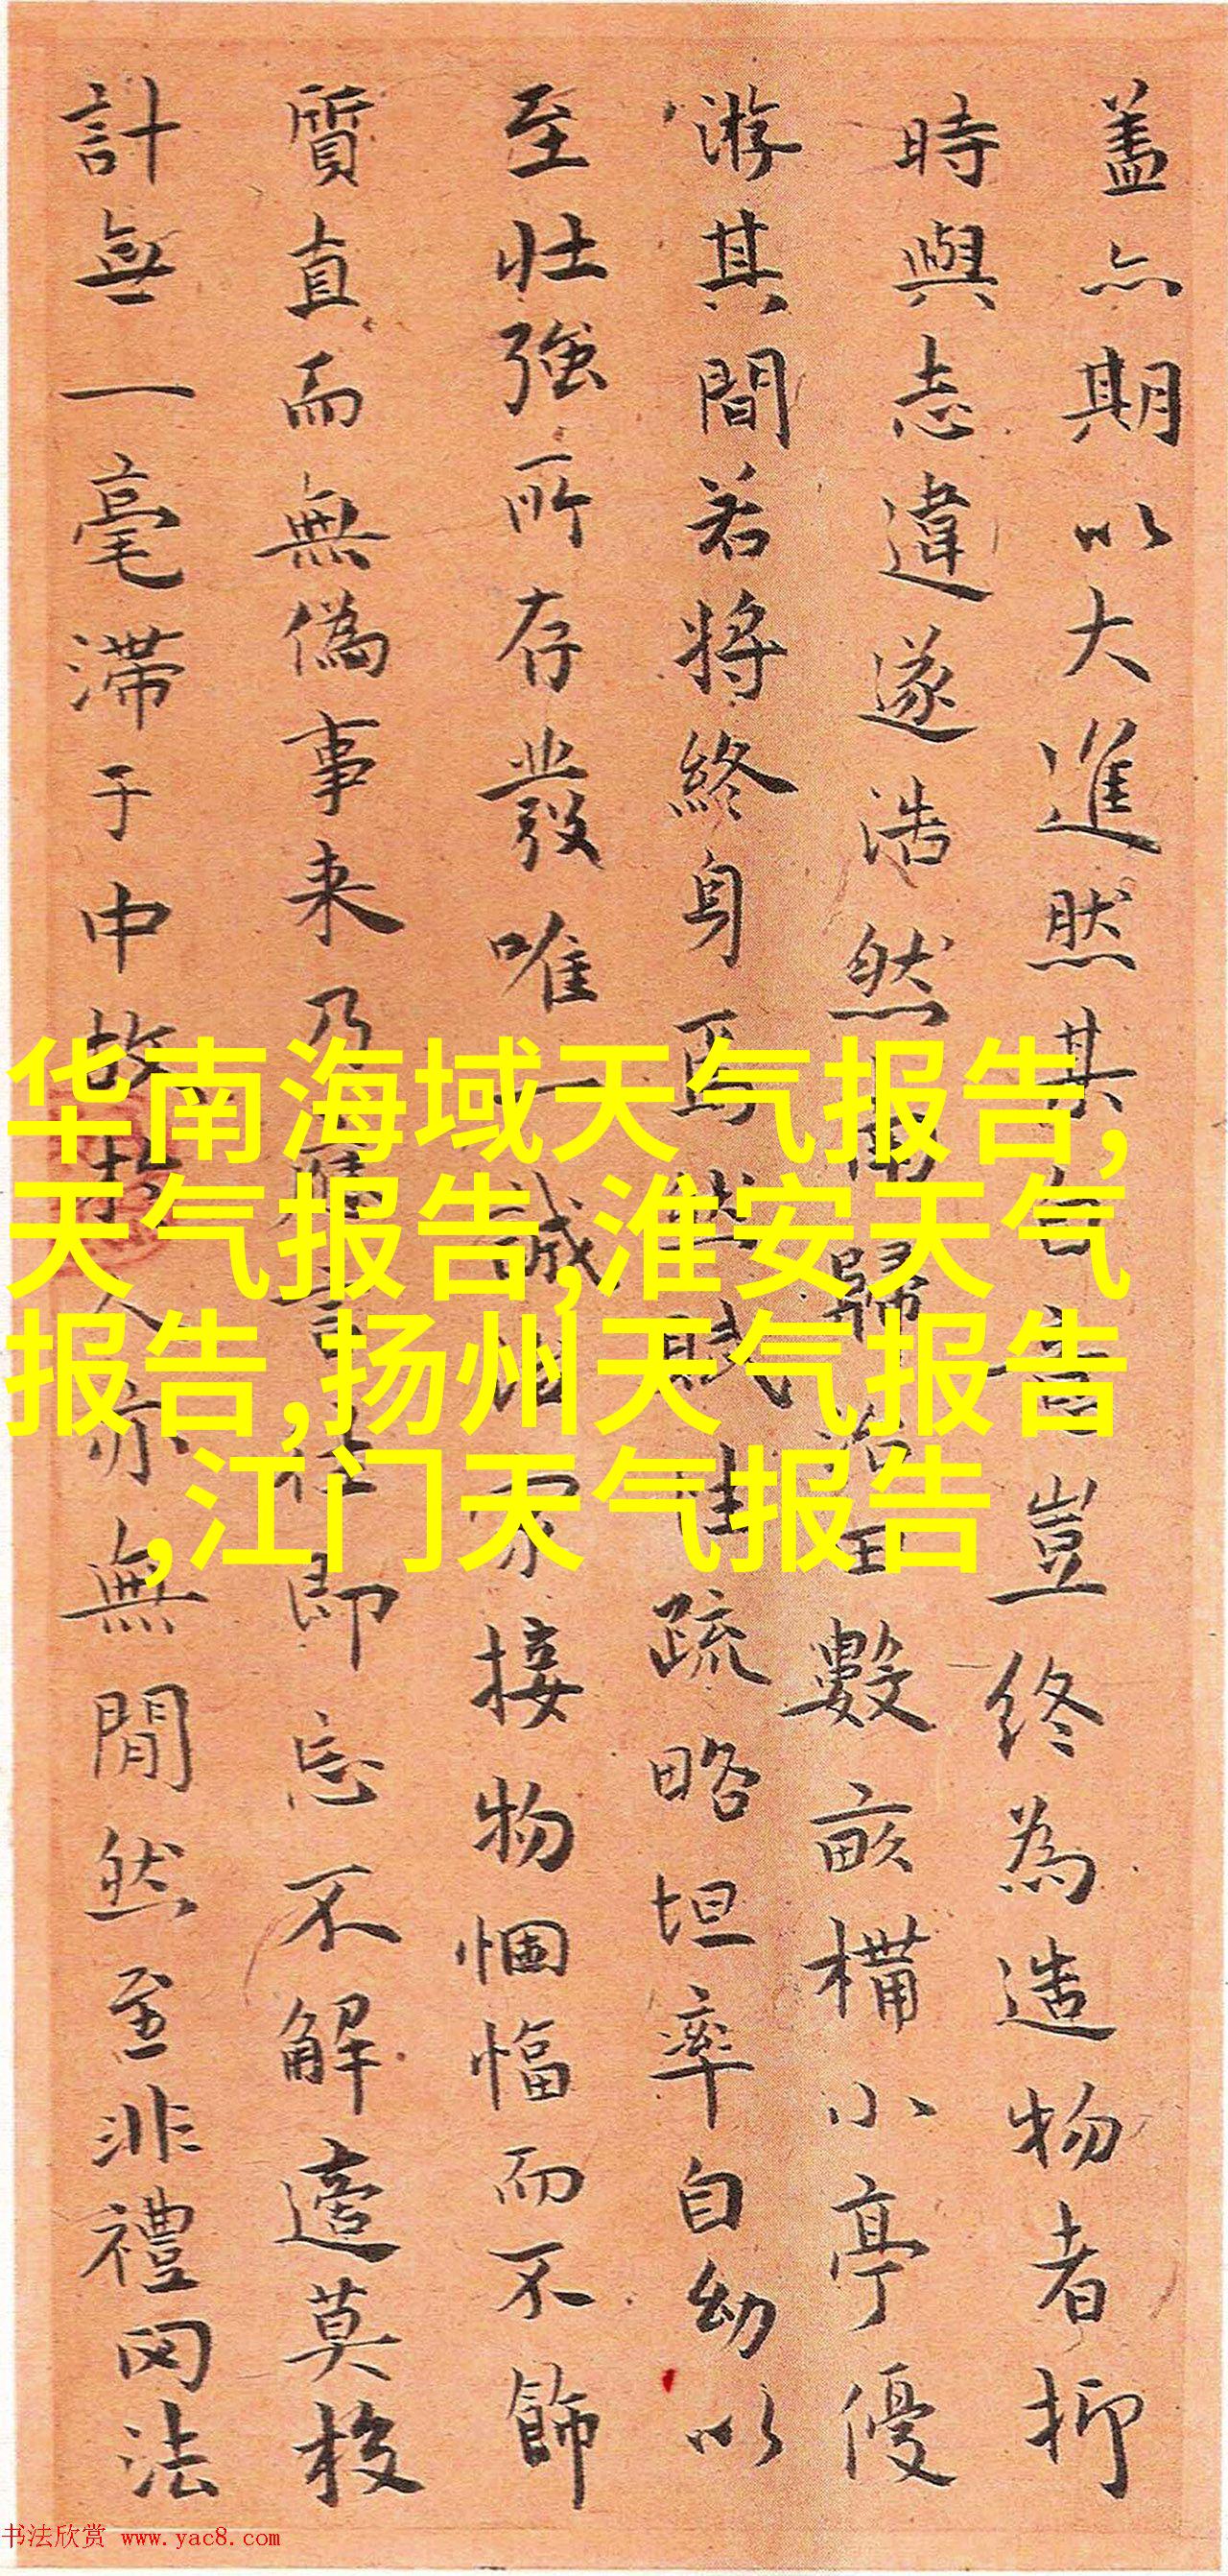 蓋亦期以大進然其
豈終為造物者抑
時與志違遂浩然
歸
數畝構小亭優
游其間若將終身焉
疏略坦率自幼以
至壯強所存發唯一誠
接物悃愊而不飾
質直而無偽事来乃
即忘不解邉莫
計無一毫滞于中故
人亦無閒然至非禮罔法
华南海域天气报告,
天气报告,淮安天气
报告,扬州天气报告
,江门天气报告
书法欣赏 www.yac8.com